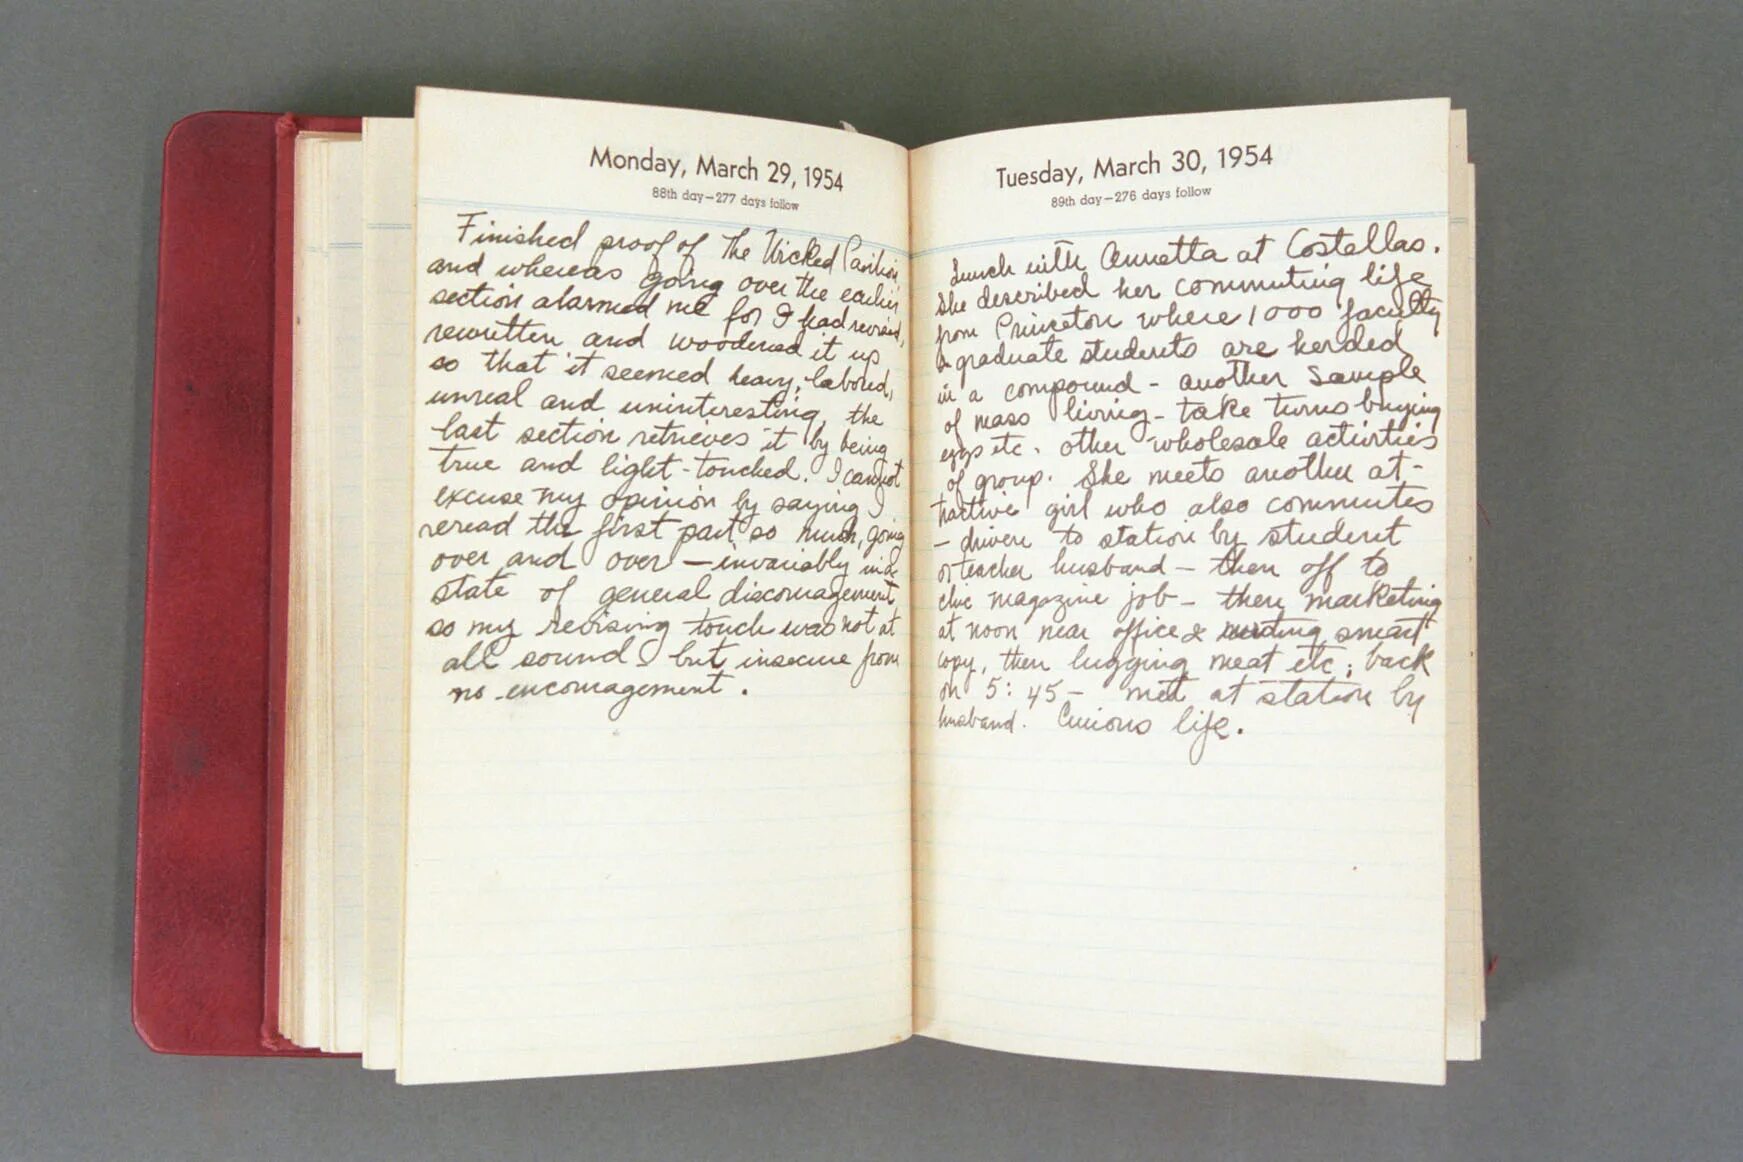 Monday, March 29, 1954
88th day—277 days follow
Finished proof of The Wicked Pavilion
and whereas going over the earlier
section alarmed me for I had revised,
rewritten and woodened it up
so that it seemed heavy, labored,
unreal and uninteresting, the
last section retrieves it by being
true and light-touched. I cannot
excuse my opinion by saying I
reread the first part so much, going
over and over — invariably in a
state of general discouragement,
so my revising touch was not at
all sound but insecure from
no encouragement.
Tuesday, March 30, 1954
89th day—276 days follow
Lunch with Annetta at Costellos.
She described her commuting life
from Princeton where 1000 faculty
& graduate students are herded
in a compound - another sample
of mass living - take turns buying
eggs etc. other wholesale activities
of group. She meets another at-
tractive girl who also commutes
- driven to station by student
or teacher husband - then off to
chic magazine job - then marketing
at noon near office & writing smart
copy, then lugging meat etc; back
on 5:45 - met at station by
husband. Curious life.